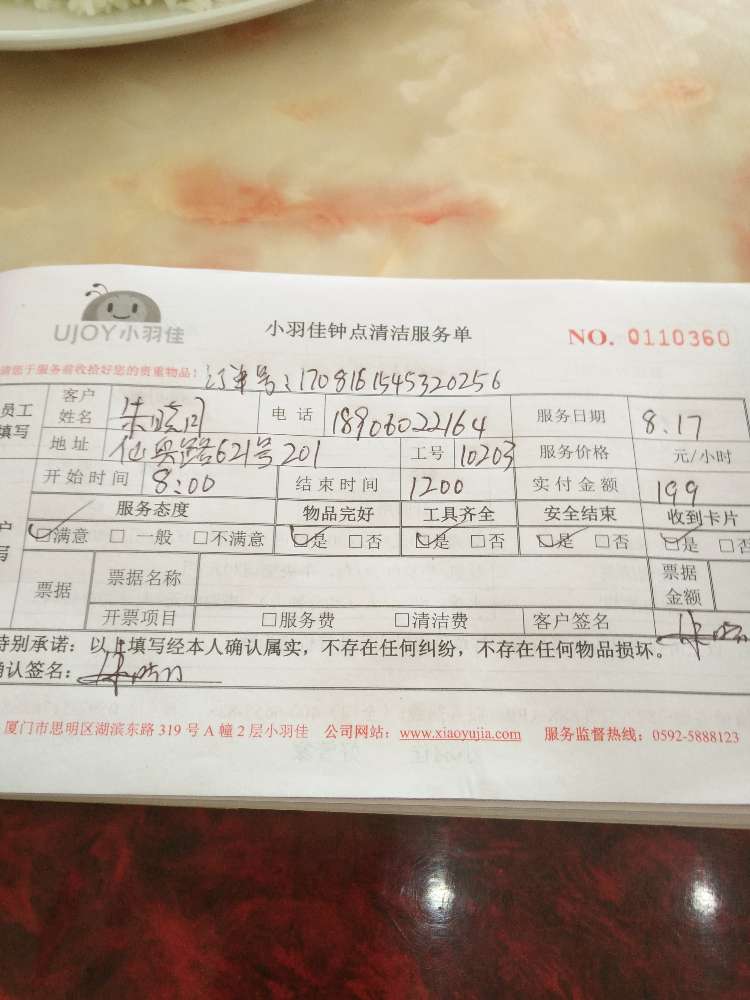 UJOY小羽佳
小羽佳钟点清洁服务单
NO. 0110360
请您于服务前收拾好您的贵重物品!
订单号:1708161545320256
员工填写 客户姓名 朱晓闪 电话 18906022164 服务日期 8.17
地址 仙岳路621号201 工号 10203 服务价格 元/小时
开始时间 8:00 结束时间 1200 实付金额 199
服务态度 物品完好 工具齐全 安全结束 收到卡片
☑满意 □ 一般 □不满意 ☑是 □否 ☑是 □否 ☑是 □否 ☑是 □否
票据 票据名称 票据金额
开票项目 □服务费 □清洁费 客户签名
特别承诺:以上填写经本人确认属实,不存在任何纠纷,不存在任何物品损坏。
确认签名:
厦门市思明区湖滨东路 319 号 A 幢 2 层小羽佳 公司网站:www.xiaoyujia.com 服务监督热线:0592-5888123